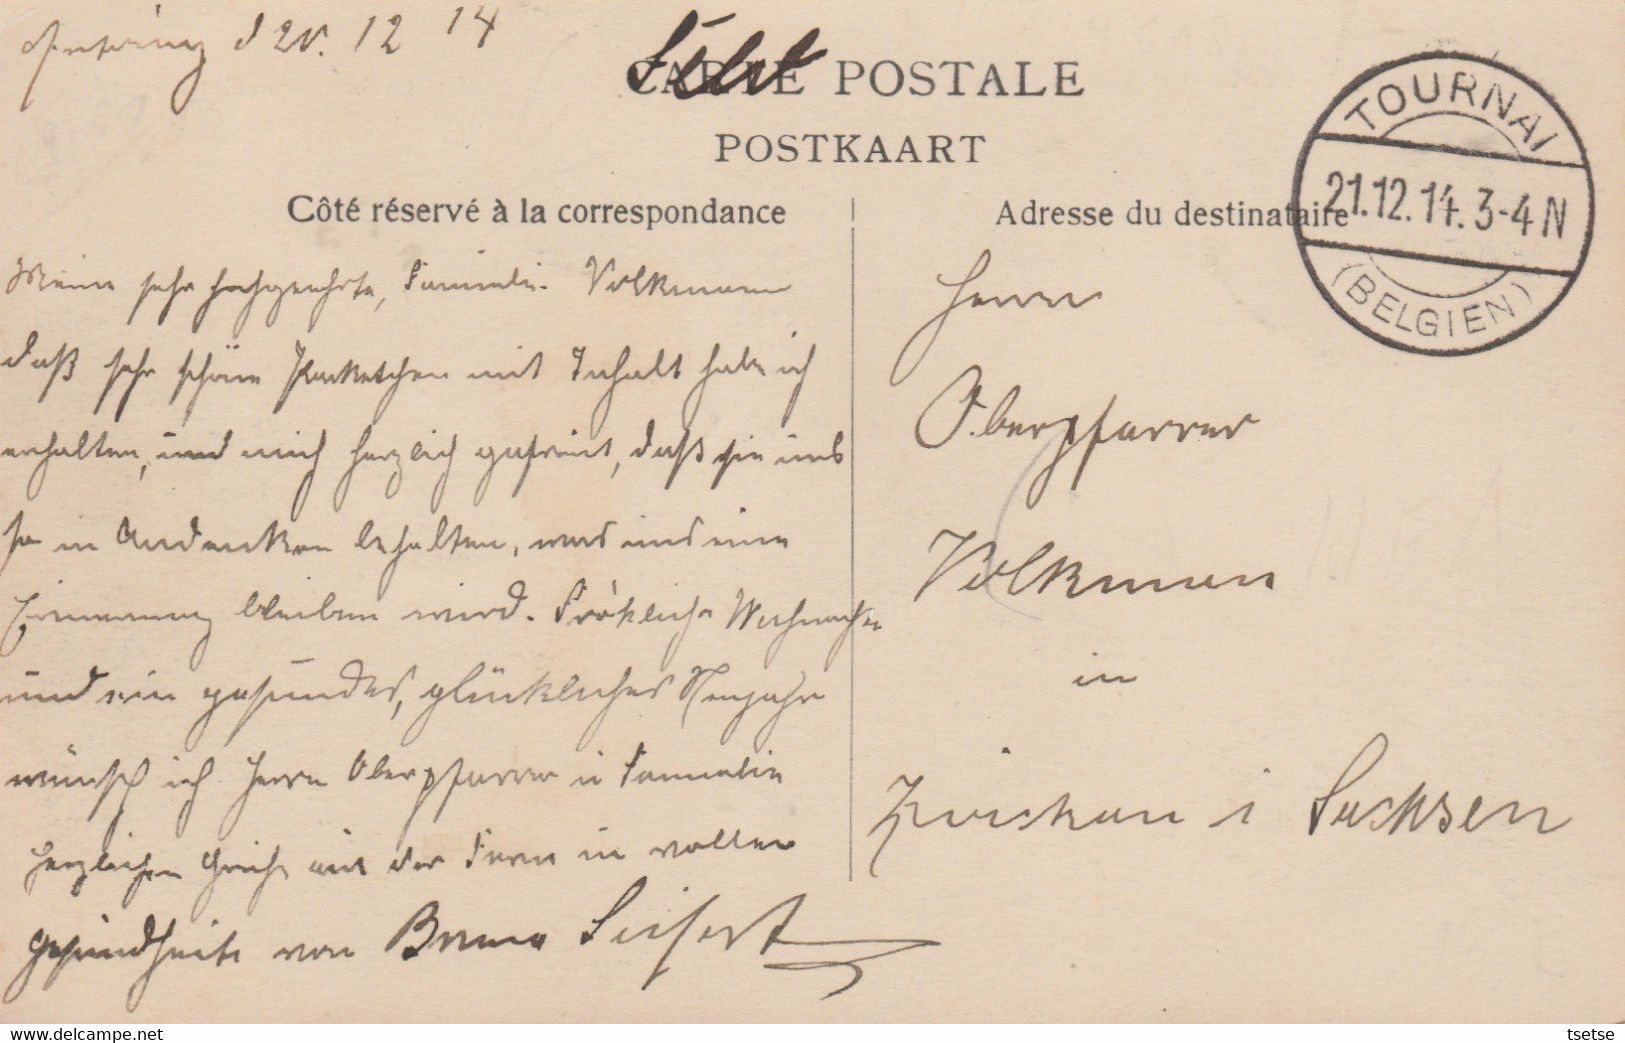 d 20. 12 14
Feld
CARTE POSTALE
POSTKAART
TOURNAI
21.12.14. 3-4 N
(BELGIEN)
Côté réservé à la correspondance
Adresse du destinataire
Meine sehr hochgeehrte, Familie. Volkmann
daß sehr schöne Packetchen mit Inhalt habe ich
erhalten, und mich herzlich gefreut, daß sie uns
so in Andenken behalten, was uns eine
Erinnerung bleiben wird. Fröhliche Weihnachten
und ein gesundes, glückliches Neujahr
wünsch ich Herrn Oberpfarrer u Familie
herzlichen Grüße aus der Fern in voller
gesundheite von Bruno Seifert
Herrn
Oberpfarrer
Volkmann
in
Zwickau i Sachsen
tsetse
www.delcampe.net